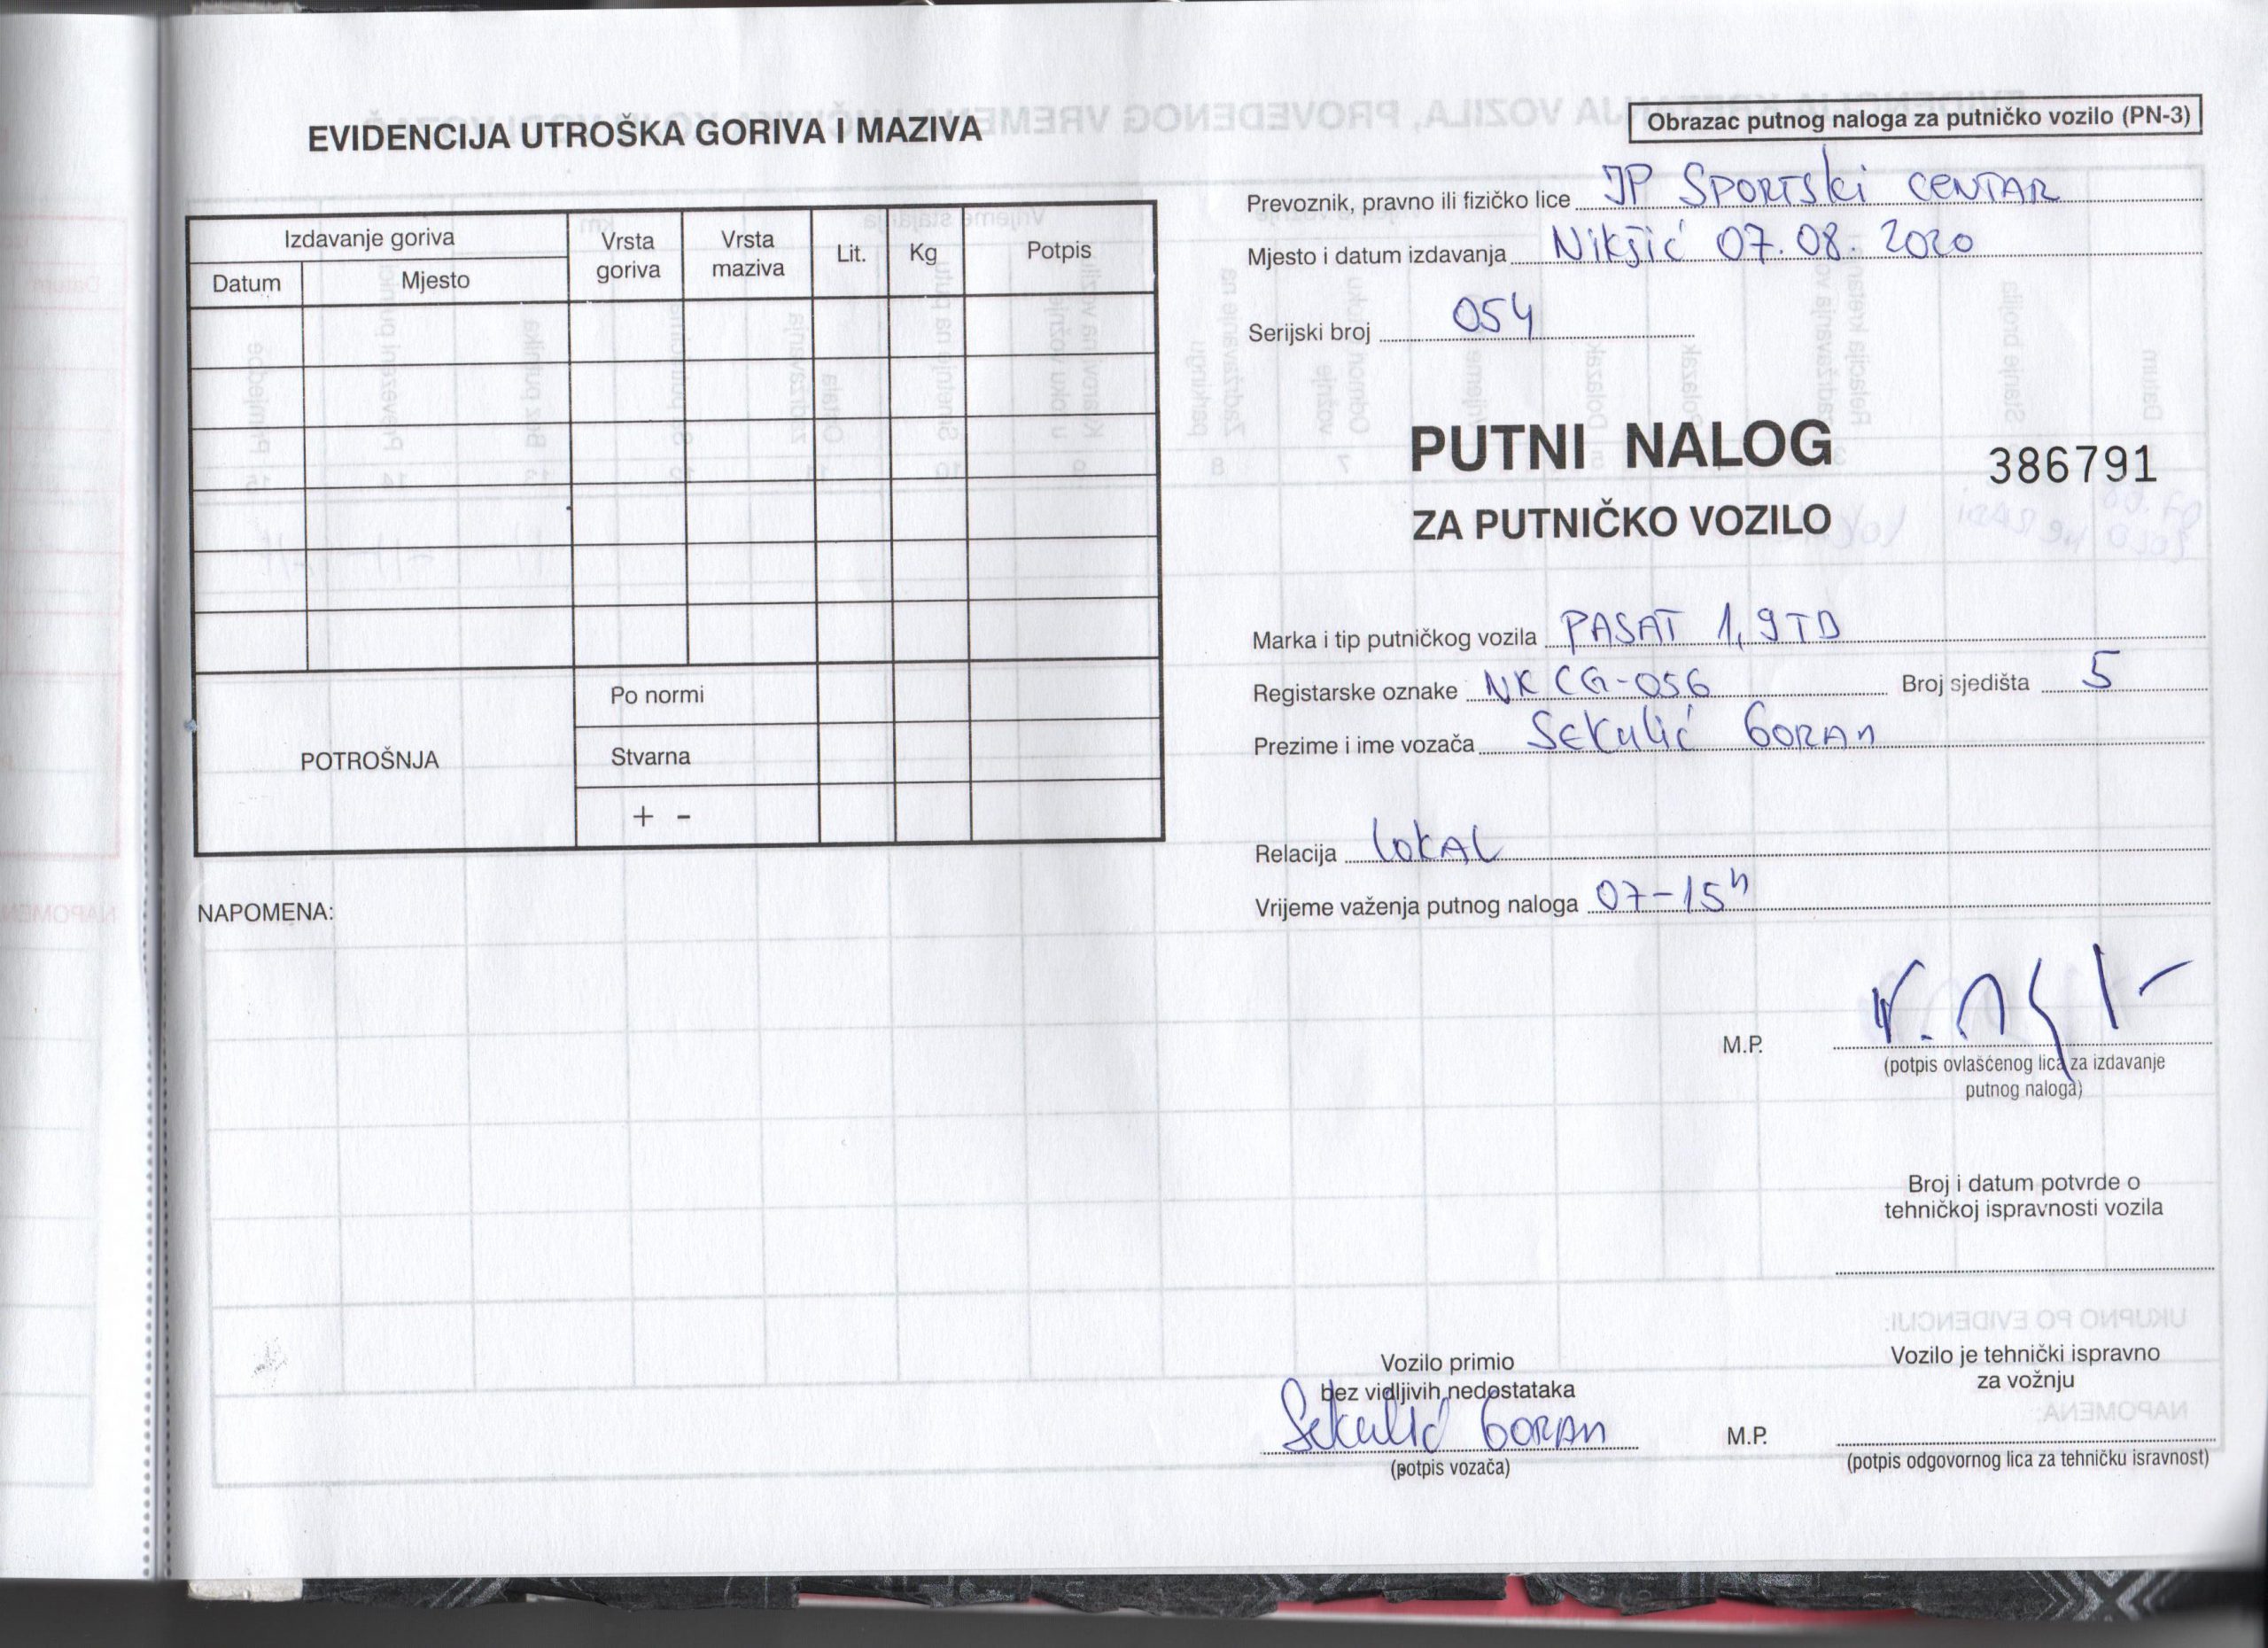 EVIDENCIJA UTROŠKA GORIVA I MAZIVA
Izdavanje goriva
Datum Mjesto
Vrsta goriva
Vrsta maziva
Lit.
Kg
Potpis
POTROŠNJA
Po normi
Stvarna
+ -
NAPOMENA:
Obrazac putnog naloga za putničko vozilo (PN-3)
Prevoznik, pravno ili fizičko lice JP SPORTSKI CENTAR
Mjesto i datum izdavanja Nikšić 07.08.2020
Serijski broj 054
PUTNI NALOG
386791
ZA PUTNIČKO VOZILO
Marka i tip putničkog vozila PASAT 1,9TD
Registarske oznake NK CG-056 Broj sjedišta 5
Prezime i ime vozača Sekulić Goran
Relacija LOKAL
Vrijeme važenja putnog naloga 07-15h
M.P.
(potpis ovlašćenog lica za izdavanje
putnog naloga)
Broj i datum potvrde o
tehničkoj ispravnosti vozila
Vozilo primio
bez vidljivih nedostataka
Sekulić Goran
(potpis vozača)
Vozilo je tehnički ispravno
za vožnju
M.P.
(potpis odgovornog lica za tehničku isravnost)